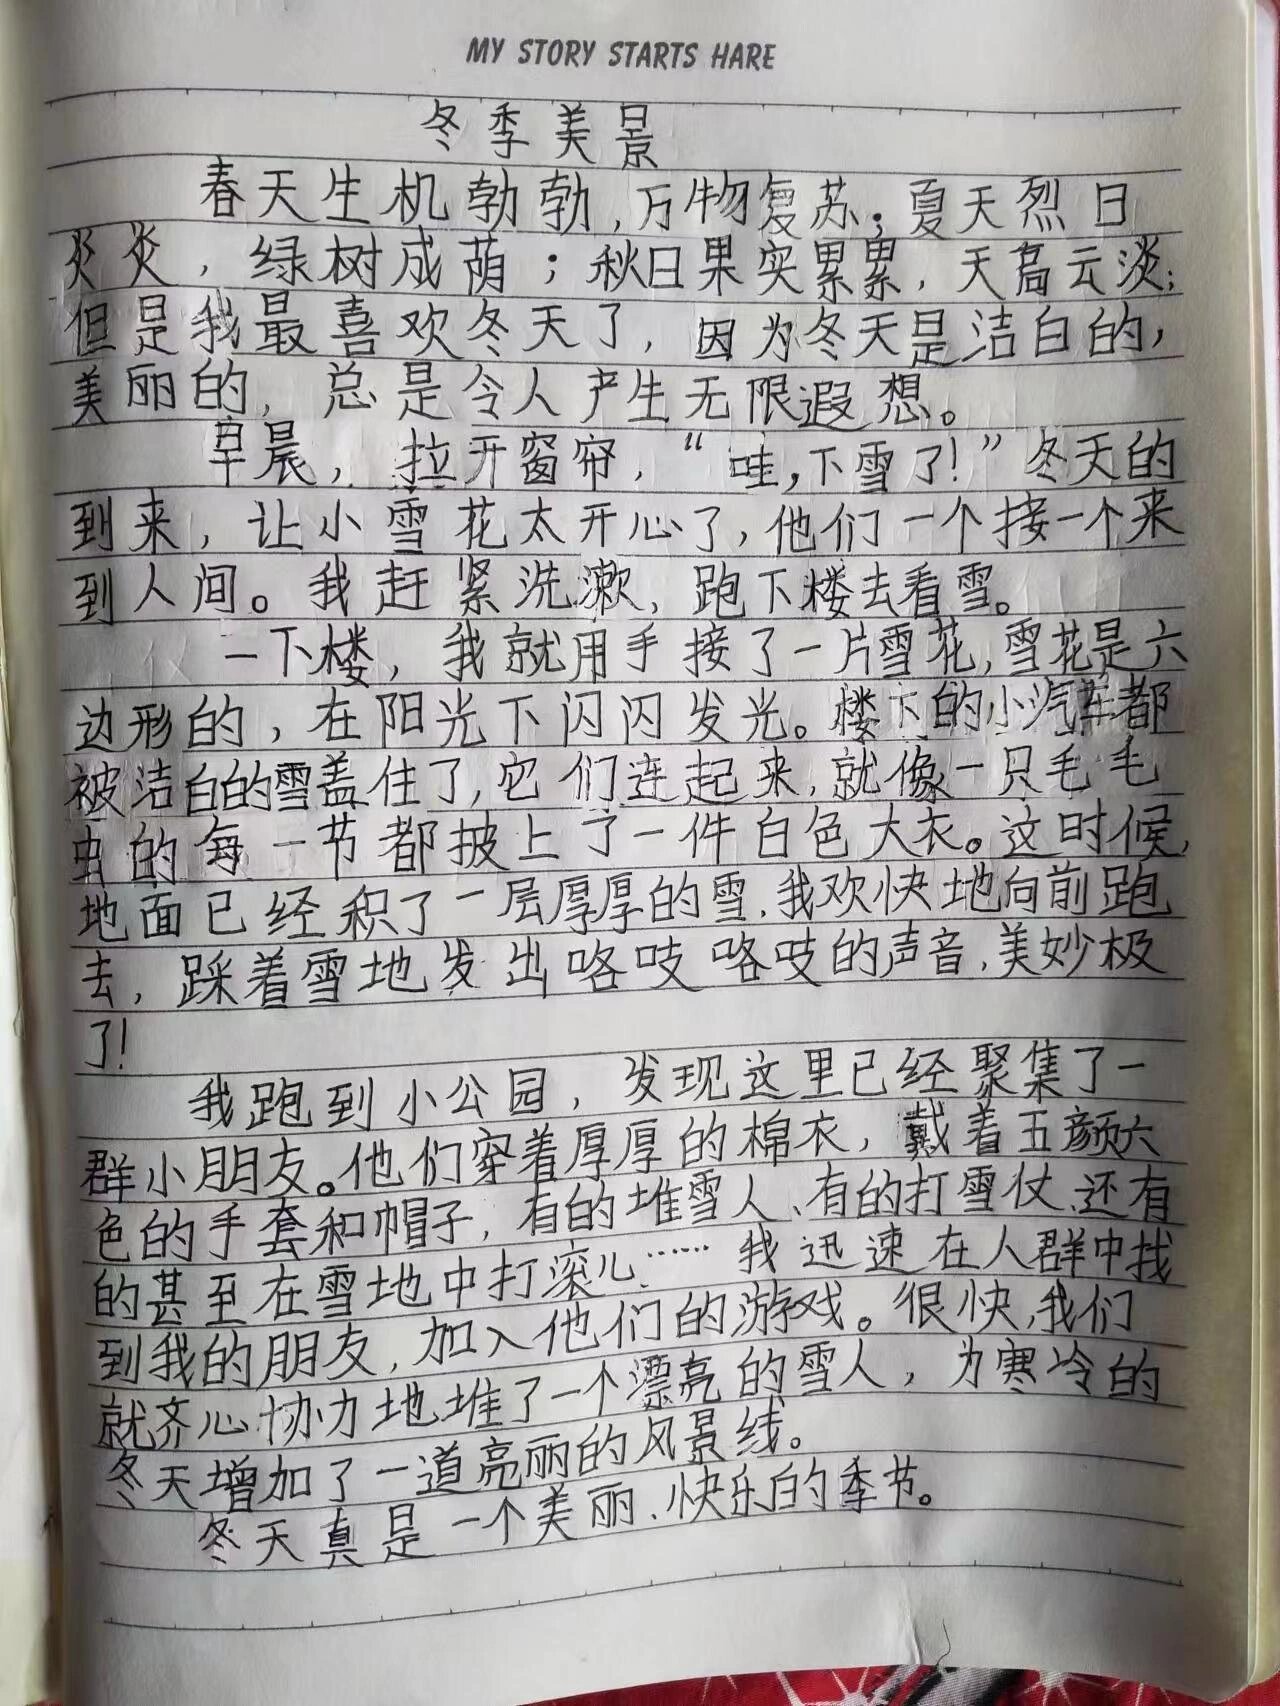 MY STORY STARTS HARE
冬季美景
春天生机勃勃，万物复苏；夏天烈日
炎炎，绿树成荫；秋日果实累累，天高云淡；
但是我最喜欢冬天了，因为冬天是洁白的，
美丽的，总是令人产生无限遐想。
早晨，拉开窗帘，“哇，下雪了！”冬天的
到来，让小雪花太开心了，他们一个接一个来
到人间。我赶紧洗漱，跑下楼去看雪。
一下楼，我就用手接了一片雪花，雪花是六
边形的，在阳光下闪闪发光。楼下的小汽车都
被洁白的雪盖住了，它们连起来，就像一只毛毛
虫的每一节都披上了一件白色大衣。这时候，
地面已经积了一层厚厚的雪，我欢快地向前跑
去，踩着雪地发出咯吱咯吱的声音，美妙极
了！
我跑到小公园，发现这里已经聚集了一
群小朋友。他们穿着厚厚的棉衣，戴着五颜六
色的手套和帽子，有的堆雪人、有的打雪仗、还有
的甚至在雪地中打滚儿……我迅速在人群中找
到我的朋友，加入他们的游戏。很快，我们
就齐心协力地堆了一个漂亮的雪人，为寒冷的
冬天增加了一道亮丽的风景线。
冬天真是一个美丽、快乐的季节。